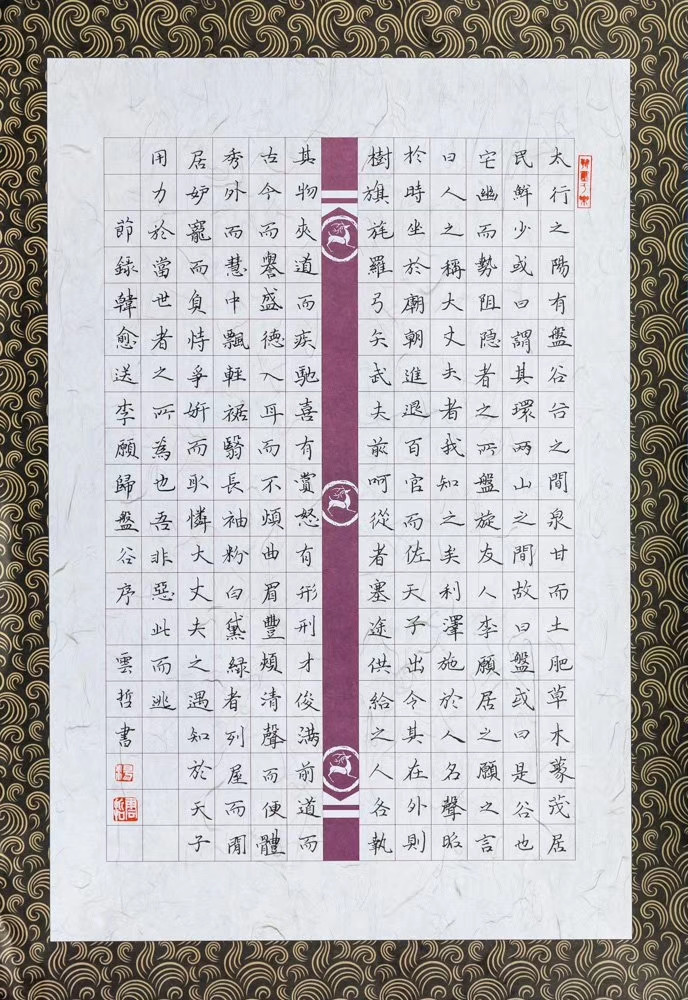 太行之陽有盤谷谷之間泉甘而土肥草木藂茂居
民鮮少或曰謂其環兩山之間故曰盤或曰是谷也
宅幽而勢阻隐者之所盤旋友人李願居之願之言
曰人之稱大丈夫者我知之矣利澤施於人名聲昭
於時坐於廟朝進退百官而佐天子出令其在外則
樹旗旄羅弓矢武夫前呵從者塞途供給之人各執
其物夾道而疾馳喜有賞怒有形刑才俊满前道而
古今而譽盛德入耳而不煩曲眉豐頰清聲而便體
秀外而慧中飄輕裾翳長袖粉白黛緑者列屋而閒
居妒寵而負恃爭妍而取憐大丈夫之遇知於天子
用力於當世者之所為也吾非惡此而逃
節録韓愈送李願歸盤谷序 雲哲書